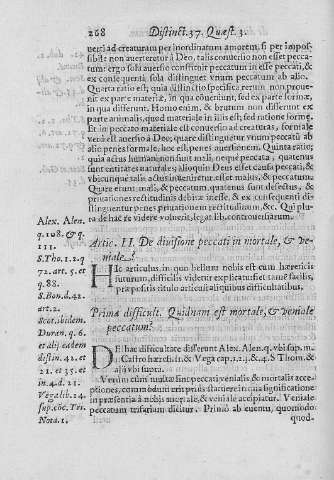 268 Distinct. 37. Quæst. 3.
uerti ad creaturam per inordinatum amorem, si per impos-
sibile non auerteretur à Deo, talis conuersio non esset pecca-
tum: ergo sola auersio constituit peccatum in esse peccati, &
ex consequenti sola distinguet vnum peccatum ab alio.
Quarta ratio est; quia distinctio specifica rerum non proue-
nit ex parte materiæ, in qua cōueniunt, sed ex parte formæ,
in qua differunt. Homo enim, & brutum non differunt ex
parte animalis, quod materiale in illis est; sed ratione formæ.
Et in peccato materialis est conuersio ad creaturas, formale
verò est auersio à Deo; quare distinguetur vnum peccatū ab
alio penes formale, hoc est, penes auersionem. Quinta ratio;
quia actus humani non sunt malè, neque peccata, quatenus
sunt entitates naturales; alioquin Deus esset causa peccati, &
vbicunque talis actus inueniretur esset malus, & peccatum:
Quare erunt mali, & peccatum, quatenus sunt defectus, &
priuationes rectitudinis debitæ inesse, & ex consequenti di-
stinguentur penes priuationem rectitudinum, &c. Qui plu-
ra de hac re videre voluerit, legat lib. controuersiarum.
Artic. II. De diuisione peccati in mortale, & ve-
niale.
Alex. Alen.
q. 108. & q.
111.
S. Tho. 1. 2. q
72. art. 5. et
q. 88.
S. Bon. d. 42.
art. 2.
Scot. ibidem.
Duran. q. 6.
et alij eadem
distin. 42. et
21. et 35. et
in 4. d. 21.
Vega lib. 14.
sup. cōc. Tri.
Nota. 1.
HIc articulus, in quo bellum nobis est cum hæreticis
futurum, difficilis videtur explicatu: esset tamē facilis,
præpositis titulo articuli aliquibus difficultatibus.
Prima difficult. Quidnam est mortale, & veniale
peccatum?
DE hac difficultate disserunt Alex. Alen. q. vbi sup. m.
Castro hæres. &c. Vega cap. 1. 2. & 4. S Thom. &
alij vbi supra.
Verùm cùm multæ sint peccati venialis, & mortalis acce-
ptiones, commodùm erit priùs statuere in qua significatione
in præsentia à nobis mortale, & veniale accipiatur. Veniale
peccatum trifariam dicitur. Primò ab euentu, quomodo
quod-